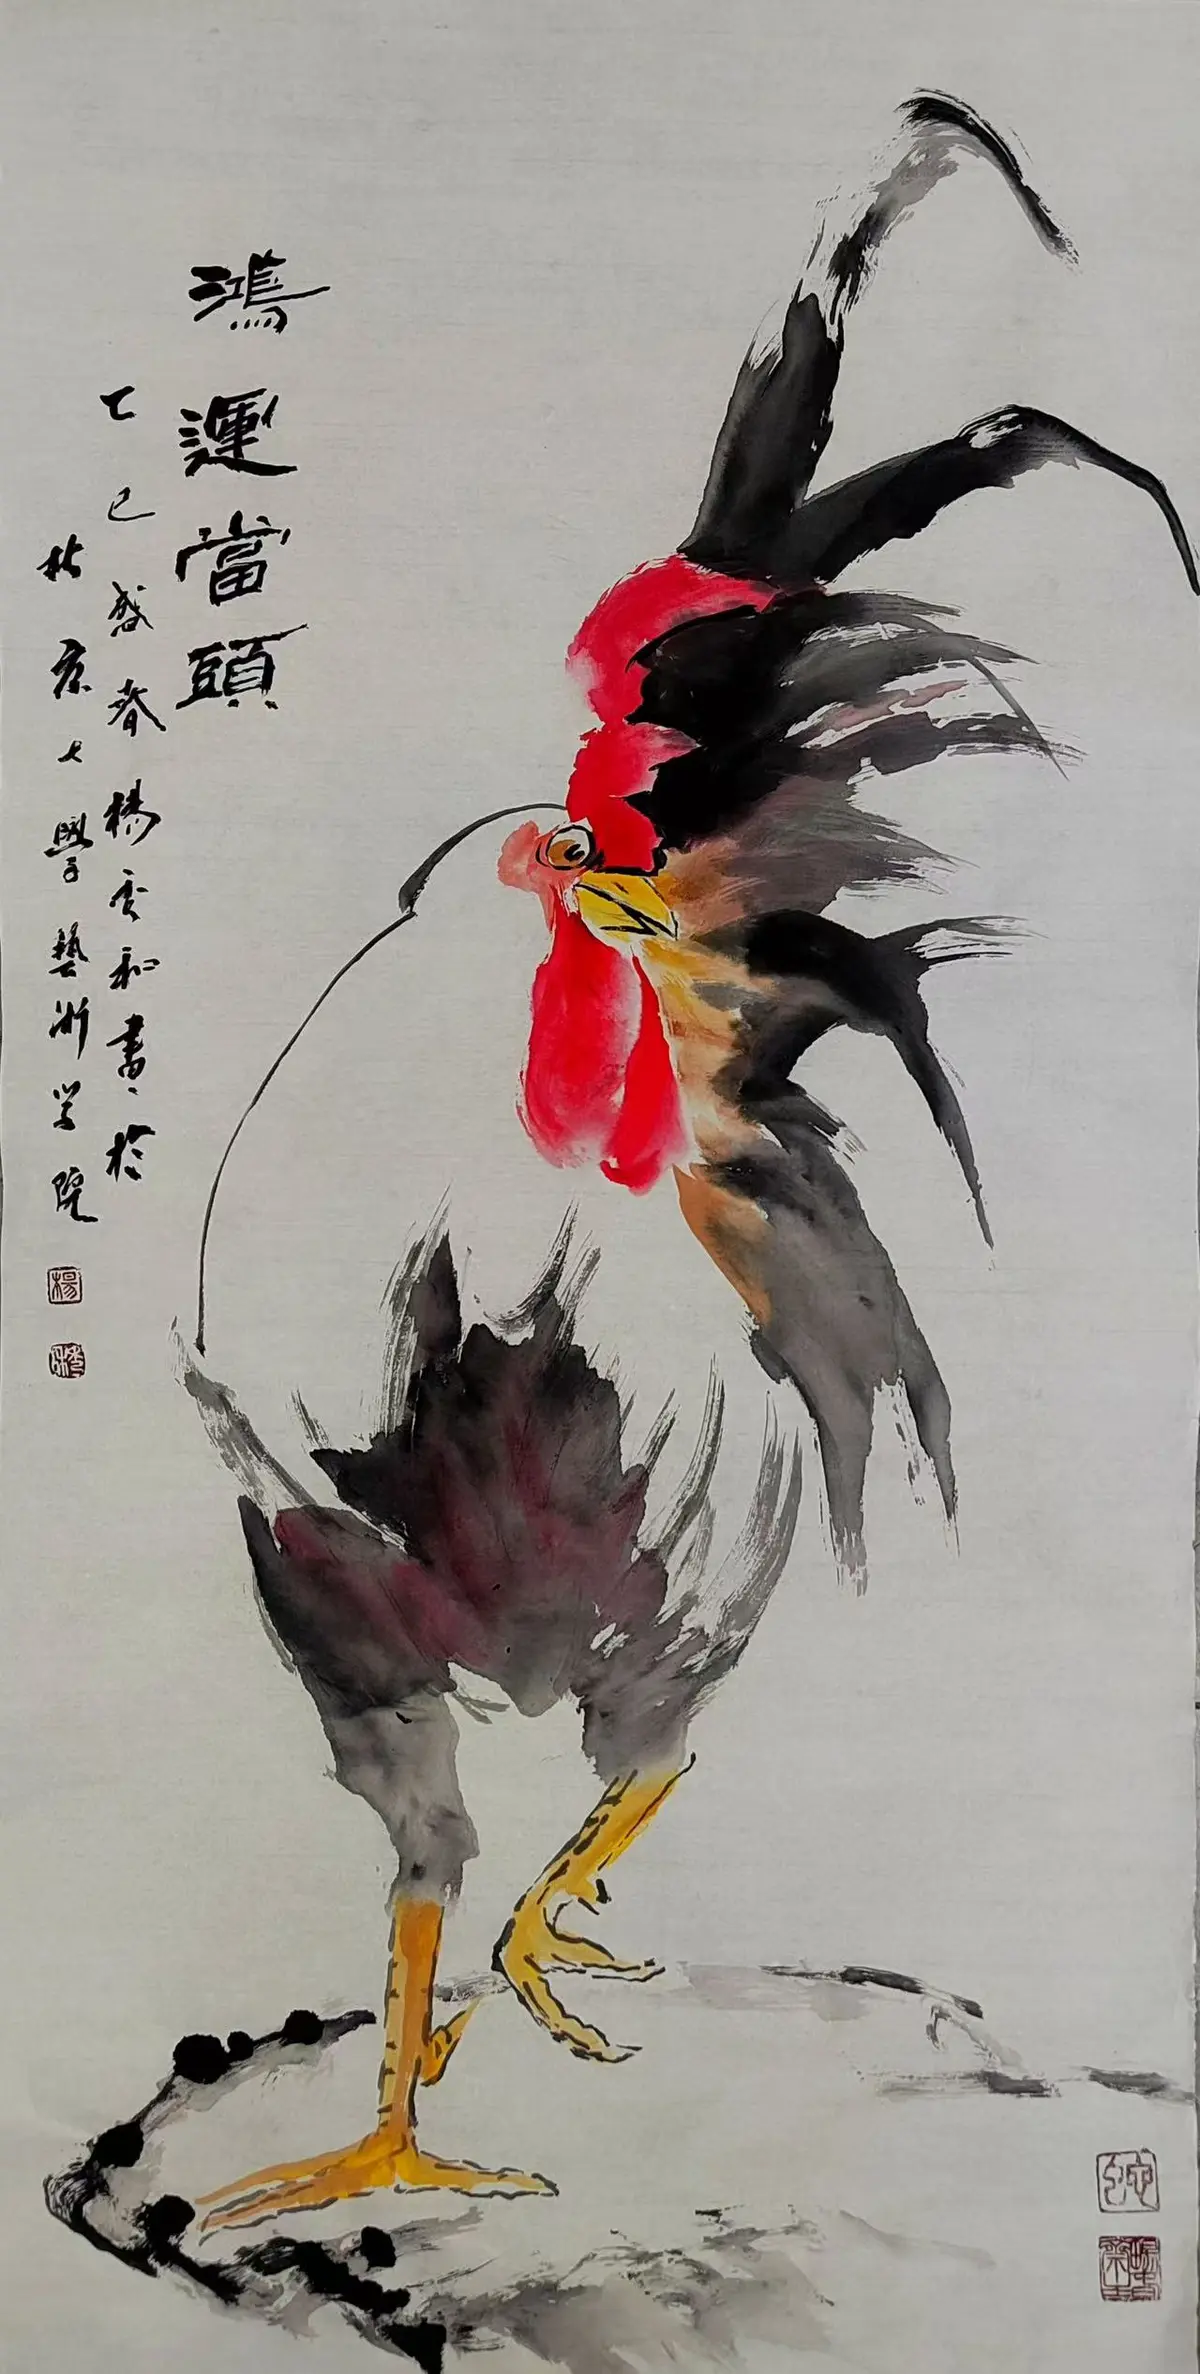 鴻運當頭
乙巳盛春楊云和書於
北京大學藝術学院
楊